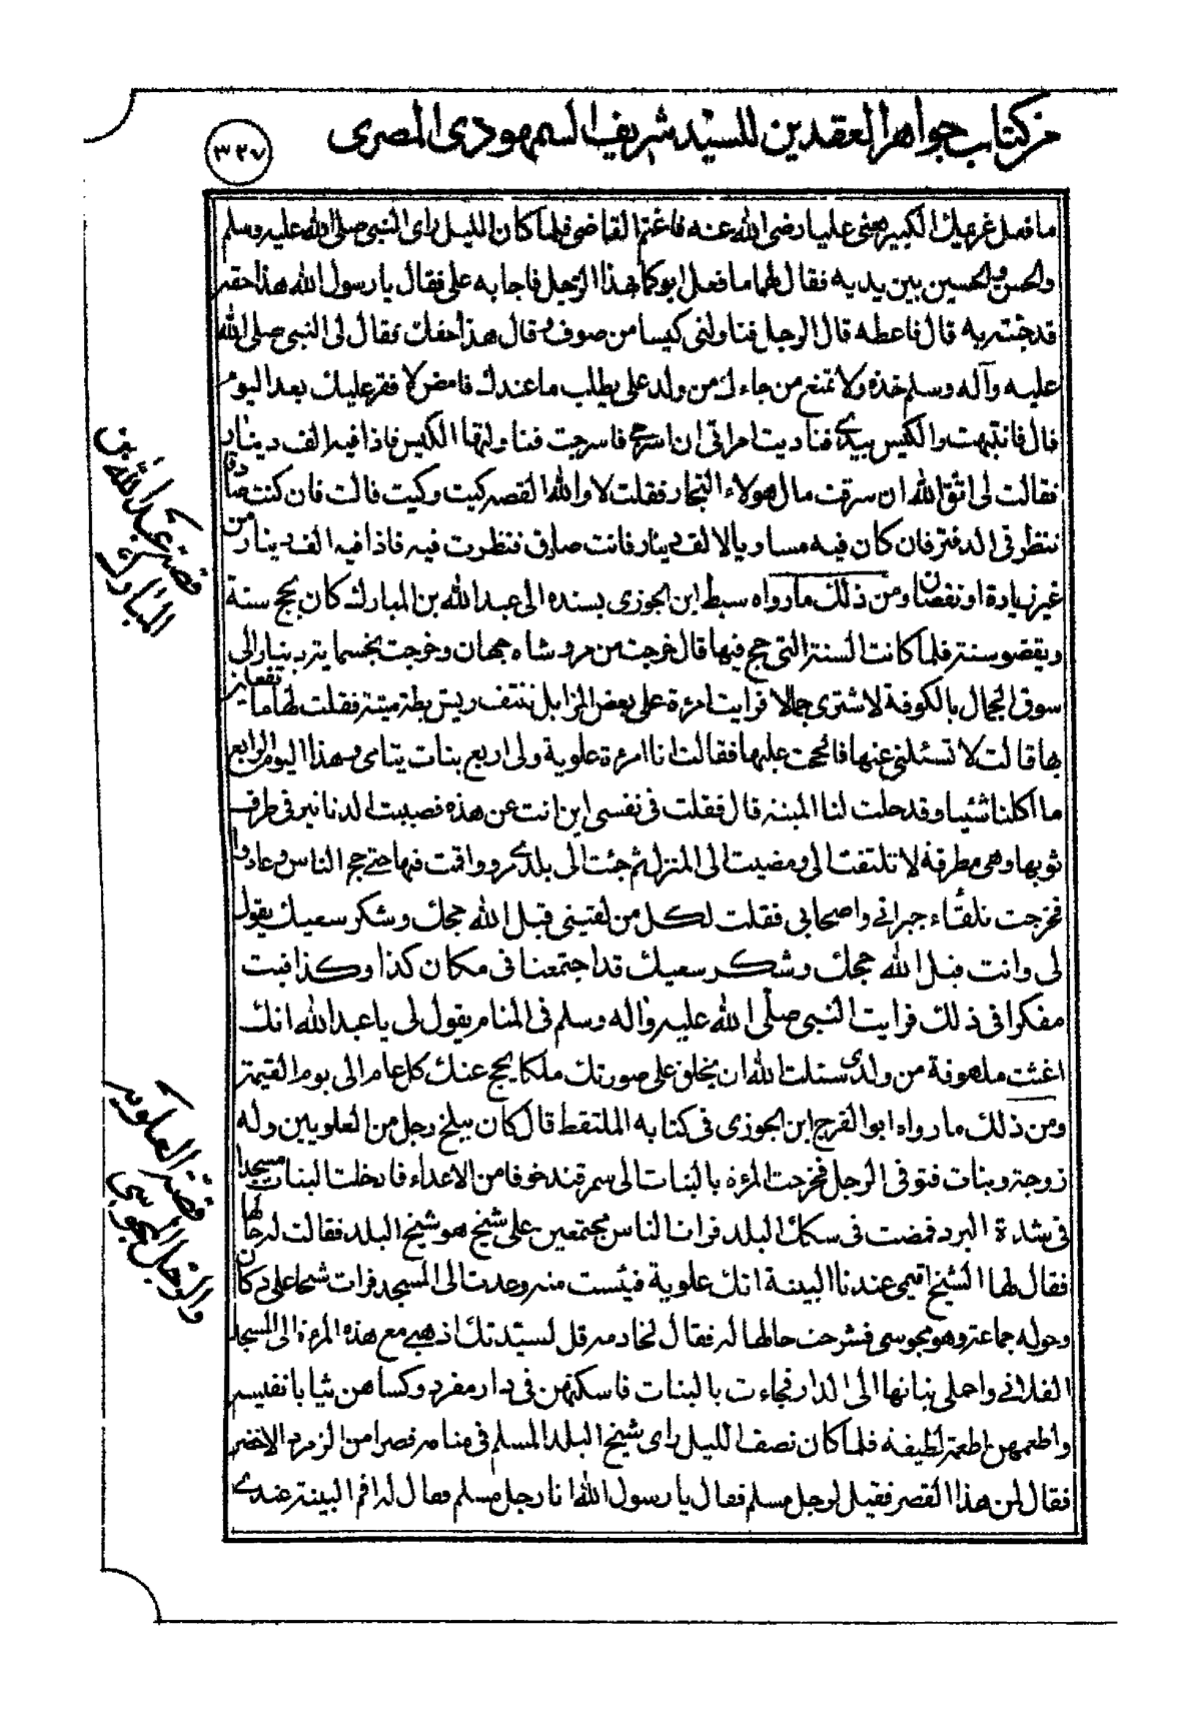 من كتاب جواهر العقدين للسيد شريف السمهودي المصري
٣٢٧
ما فعل غريمك الكبير يعني عليا رضي الله عنه فاغتم القاضي فلما كان الليل راى النبي صلى الله عليه وسلم
والحسن والحسين بين يديه فقال لهما ما فعل ابوكما لهذا الرجل فاجابه على فقال يا رسول الله هذا حقه
قد جئته به قال فاعطه قال الرجل فناولني كيسا من صوف وقال هذا حقك فقال لى النبي صلى الله
عليه وآله وسلم خذه ولا تمنع من جاءك من ولد على يطلب ما عندك فامض لا فقر عليك بعد اليوم
قال فانتبهت والكيس بيدي فناديت امراتى ان اسرجي فاسرجت فناولتها الكيس فاذا فيه الف دينار
فقالت لى اتق الله ان سرقت مال هولاء التجار فقلت لا والله القصه كيت وكيت قالت فان كنت صادقا
ننظر في الدفتر فان كان فيه مساويا لالف دينار فانت صادق فنظرت فيه فاذا فيه الف دينار من
غير زيادة او نقصان ومن ذلك ما رواه سبط ابن الجوزى بسنده الى عبد الله بن المبارك كان يحج سنة
ويقضو سنة فلما كانت السنة التي حج فيها قال خرجت من مرو شاه جهان وخرجت بخسماية دينار الى
سوق الجمال بالكوفة لاشترى جمالا فرايت امرءة على بعض المزابل تنتف ريش بطة ميتة فقلت لها ما تفعلين
بها قالت لا تسئلني عنها فالححت عليها فقالت انا امرءة علوية ولى اربع بنات يتامى وهذا اليوم الرابع
ما اكلنا شئيا وقد حلت لنا الميتة قال فقلت في نفسى اين انت عن هذه فصببت الدنانير في طرف
ثوبها وهي مطرقة لا تلتفت الى ومضيت الى المنزل ثم جئت الى بلدي مرو واقمت فيها حتى حج الناس وعادوا
فخرجت تلقاء جيراني واصحابى فقلت لكل من لقيتني قبل الله حجك وشكر سعيك يقول
لى وانت قبل الله حجك وشكر سعيك قد اجتمعنا في مكان كذا وكذا فبت
مفكرا في ذلك فرايت النبي صلى الله عليه واله وسلم في المنام يقول لى يا عبد الله انك
اغثت ملهوفة من ولدى سئلت الله ان يخلق على صورتك ملكا يحج عنك كل عام الى يوم القيمة
ومن ذلك ما رواه ابو الفرج ابن الجوزى في كتابه الملتقط قال كان ببلخ رجل من العلويين وله
زوجة وبنات فتوفى الرجل فخرجت المرءة بالبنات الى سمرقند خوفا من الاعداء فادخلت البنات مسجدا
في شدة البرد فمضت في سكك البلد فرات الناس مجتمعين على شيخ هو شيخ البلد فقالت له حالها
فقال لها الشيخ اقيمي عندنا البينة انك علوية فيئست منه وعدت الى المسجد فرات شيخا على دكان
وحوله جماعة وهو مجوسى فشرحت حالها له فقال لخادمه قل لسيدتك اذهبي مع هذه المرءة الى المسجد
الفلاني واحملى بناتها الى الدار فجاءت بالبنات فاسكنهن في دار مفرد وكساهن ثيابا نفيسة
واطعمهن اطعمة لطيفة فلما كان نصف الليل راى شيخ البلد المسلم في منامه قصرا من الزمرد الاخضر
فقال لمن هذا القصر فقيل لرجل مسلم فقال يا رسول الله انا رجل مسلم فقال له اقم البينة عندي
قصة عبد الله بن
المبارك
قصة العلوية
والرجل المجوسى